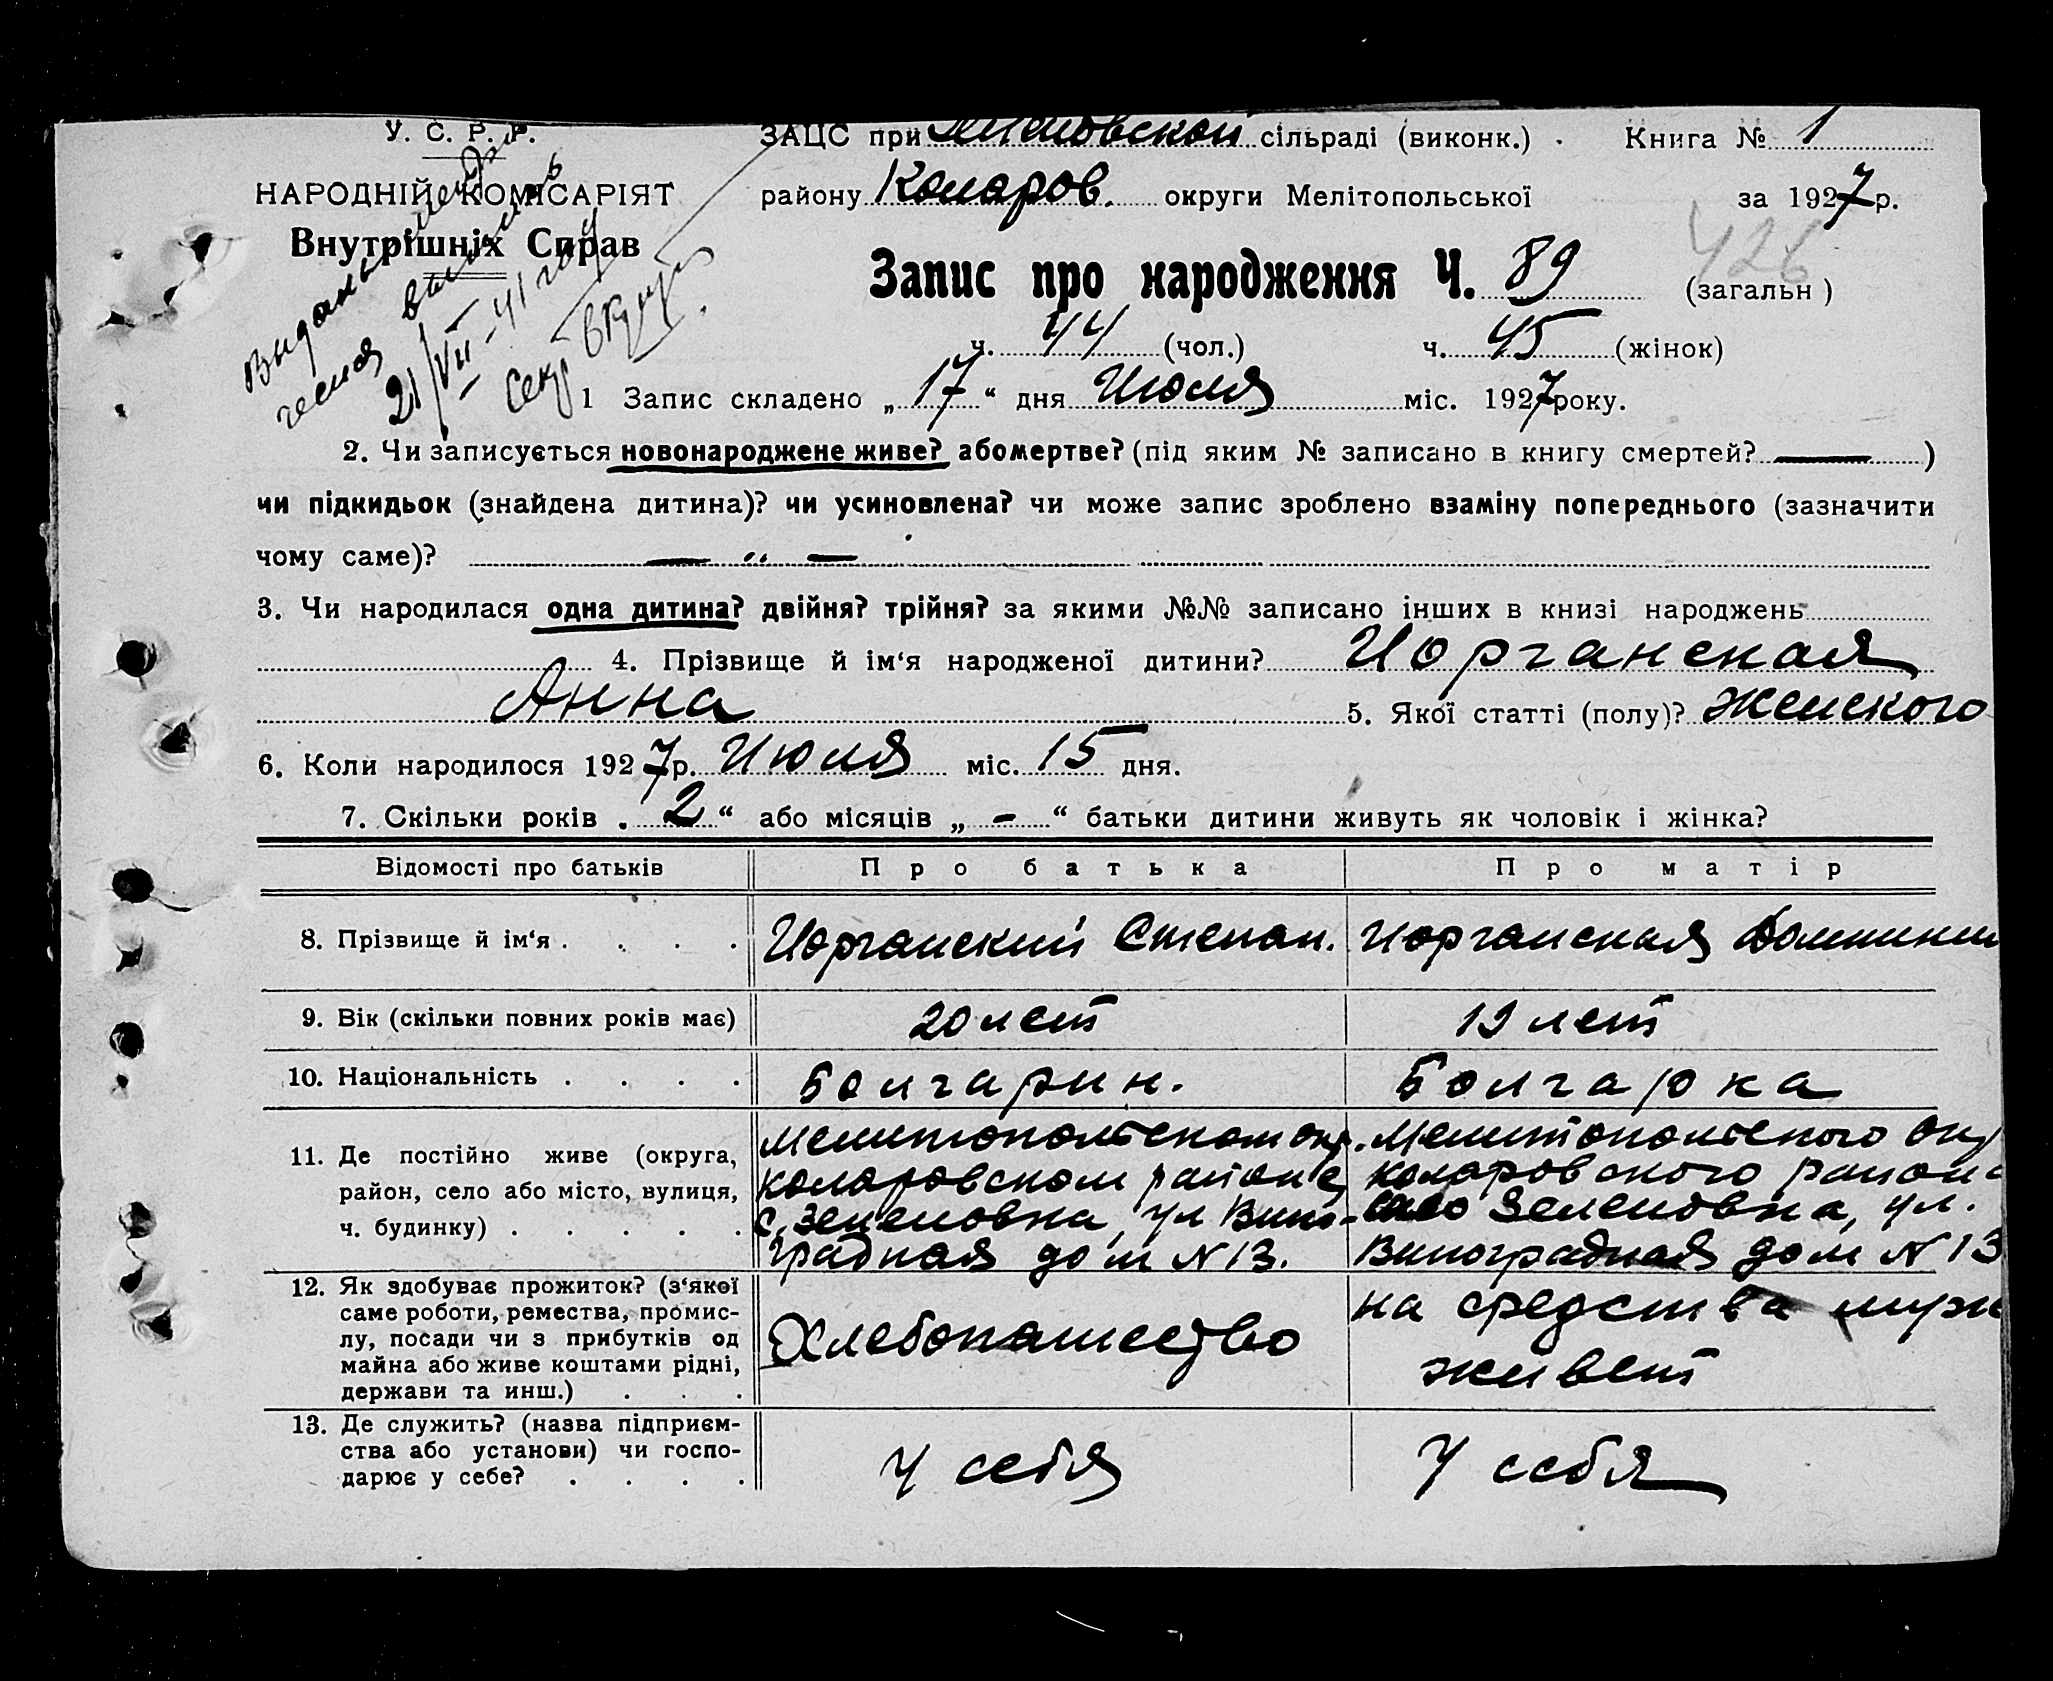 У. С. Р. Р.
НАРОДНІЙ КОМІСАРІЯТ
Внутрішніх Справ
21/VII-41 году
Секр
ЗАЦС при сільраді (виконк.) Книга № 1
району Коларов. округи Мелітопольської за 1927 р.
426
Запис про народження Ч. 89 (загальн)
ч. 44 (чол.) ч. 45 (жінок)
1 Запис складено „17“ дня Июля міс. 1927 року.
2. Чи записується новонароджене живе? або мертве? (під яким № записано в книгу смертей? —)
чи підкидьок (знайдена дитина)? чи усиновлена? чи може запис зроблено взаміну попереднього (зазначити
чому саме)? — „ —
3. Чи народилася одна дитина? двійня? трійня? за якими №№ записано інших в книзі народжень
4. Прізвище й ім‘я народженої дитини? Иорганская
Анна 5. Якої статті (полу)? Женского
6. Коли народилося 1927 р. Июля міс. 15 дня.
7. Скільки років „2“ або місяців „-“ батьки дитини живуть як чоловік і жінка?
Відомості про батьків Про батька Про матір
8. Прізвище й ім‘я . . . . Иорганский Степан. Иорганская
9. Вік (скільки повних років має) 20 лет 19 лет
10. Національність . . . . Болгарин. Болгарка
11. Де постійно живе (округа,
район, село або місто, вулиця,
ч. будинку) . . . . .
Мелитопольском окр.
коларовском районе
с. Зеленовка, ул Вино-
градная дом N 13.
Мелитопольского окр
коларовского района
село Зеленовка, ул.
Виноградная дом N 13
12. Як здобуває прожиток? (з‘якої
саме роботи, ремества, промис-
лу, посади чи з прибутків од
майна або живе коштами рідні,
держави та инш.) . . .
Хлебопашество
на средства мужа
живет
13. Де служить? (назва підприєм-
ства або установи) чи госпо-
дарює у себе? . . . .
У себя
У себя